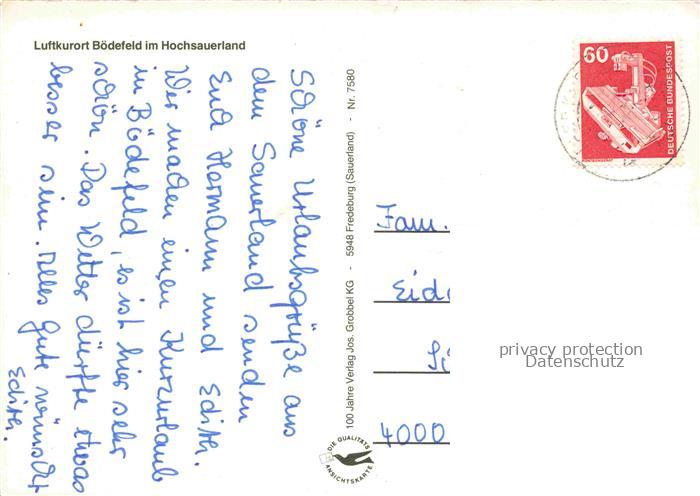 Luftkurort Bödefeld im Hochsauerland
Schöne Urlaubsgrüße aus
dem Sauerland senden
Euch Hermann und Edith.
Wir machen einen Kurzurlaub
in Bödefeld, es ist hier sehr
schön. Das Wetter dürfte etwas
besser sein. Alles Gute wünscht
Edith.
100 Jahre Verlag Jos. Grobbel KG - 5948 Fredeburg (Sauerland) - Nr. 7580
DIE QUALITÄTS
ANSICHTSKARTE
60
DEUTSCHE BUNDESPOST
Fam.
4000
privacy protection
Datenschutz